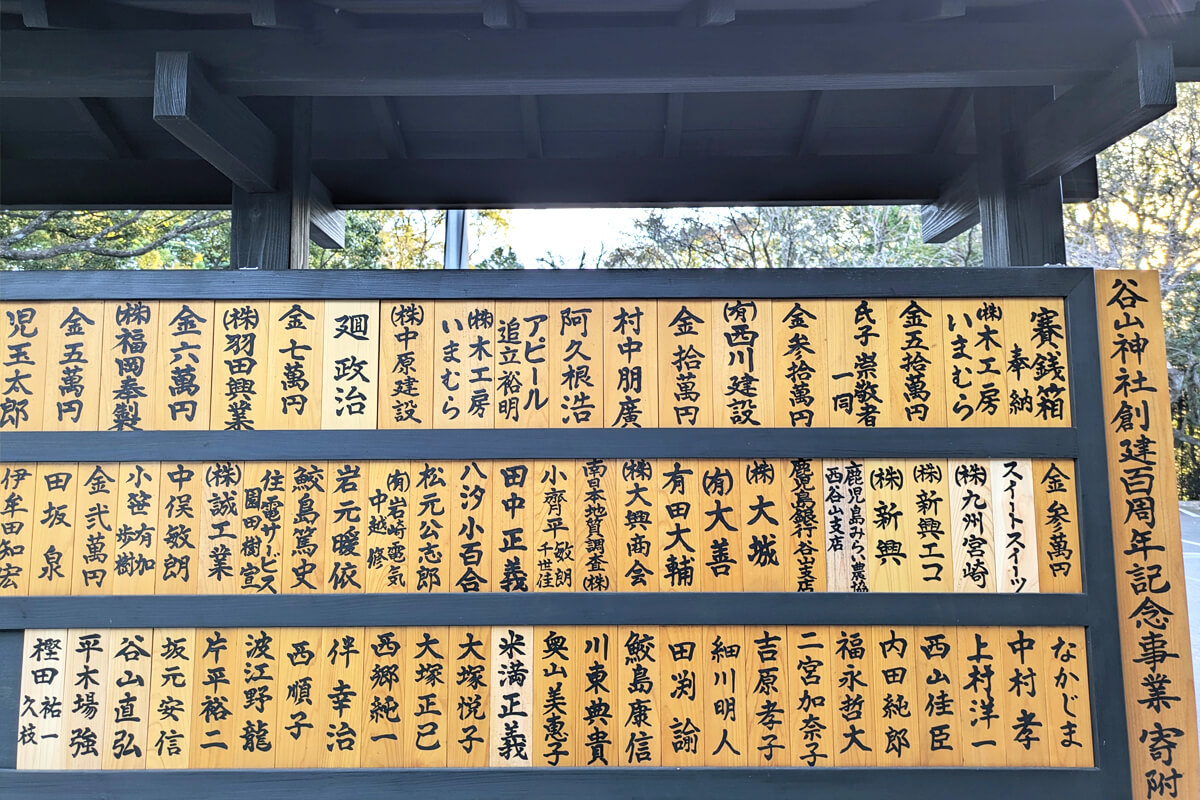 谷山神社創建百周年記念事業 寄附
賽銭箱
奉納
㈱木工房
いまむら
金五拾萬円
氏子 崇敬者
一同
金参拾萬円
㈲西川建設
金拾萬円
村中朋廣
阿久根 浩
アピール
追立裕明
㈱木工房
いまむら
㈱中原建設
廻 政治
金七萬円
㈱羽田興業
金六萬円
㈱福岡奉製
金五萬円
児玉太郎
金参萬円
スイートスイーツ
㈱九州宮崎
㈱新興エコ
㈱新興
鹿児島みらい農協
西谷山支店
鹿児島銀行谷山支店
㈱大城
㈲大善
有田大輔
㈱大興商会
南日本地質調査㈱
小齊平 敏朗
千世佳
田中正義
八汐小百合
松元公志郎
㈲岩崎電気
中越 修
岩元暖依
鮫島篤史
住電サービス
園田樹宣
㈱誠工業
中俣敏朗
小笹 有加
歩樹
金弐萬円
田坂 泉
伊牟田知宏
なかじま
中村 孝
上村洋一
西山佳臣
内田純郎
福永哲大
二宮加奈子
吉原孝子
細川明人
田渕 諭
鮫島康信
川東典貴
奥山美恵子
米満正義
大塚悦子
大塚正已
西郷純一
伴 幸治
西 順子
波江野 龍
片平裕二
坂元安信
谷山直弘
平木場 強
樫田 祐一
久枝